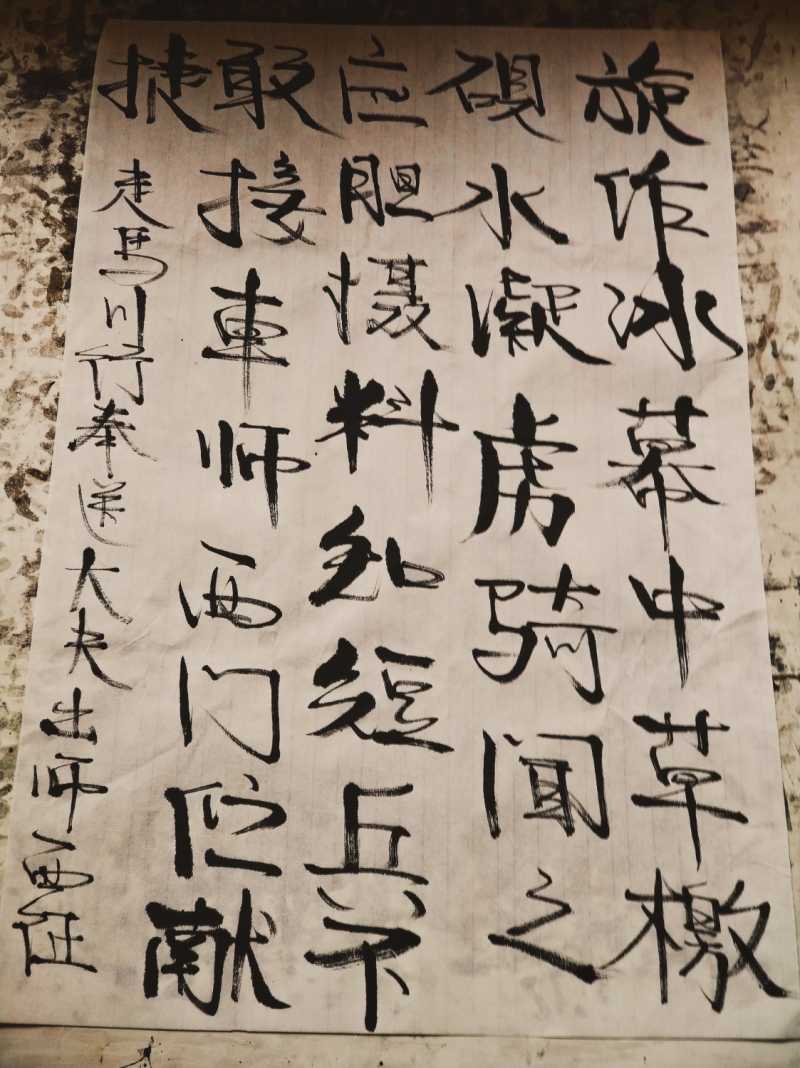 旋作冰幕中草檄
硯水凝虏骑闻之
应胆慑料知短兵不
敢接車师西门伫献
捷
走马川行奉送大夫出师西征